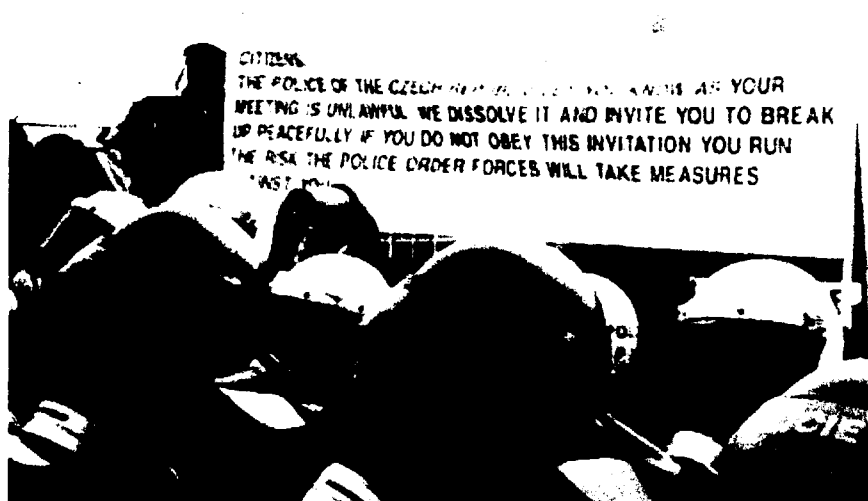 CITIZENS
THE POLICE OF THE CZECH YOU KNOW AS YOUR
MEETING IS UNLAWFUL WE DISSOLVE IT AND INVITE YOU TO BREAK
UP PEACEFULLY IF YOU DO NOT OBEY THIS INVITATION YOU RUN
THE RISK THE POLICE ORDER FORCES WILL TAKE MEASURES
YOU